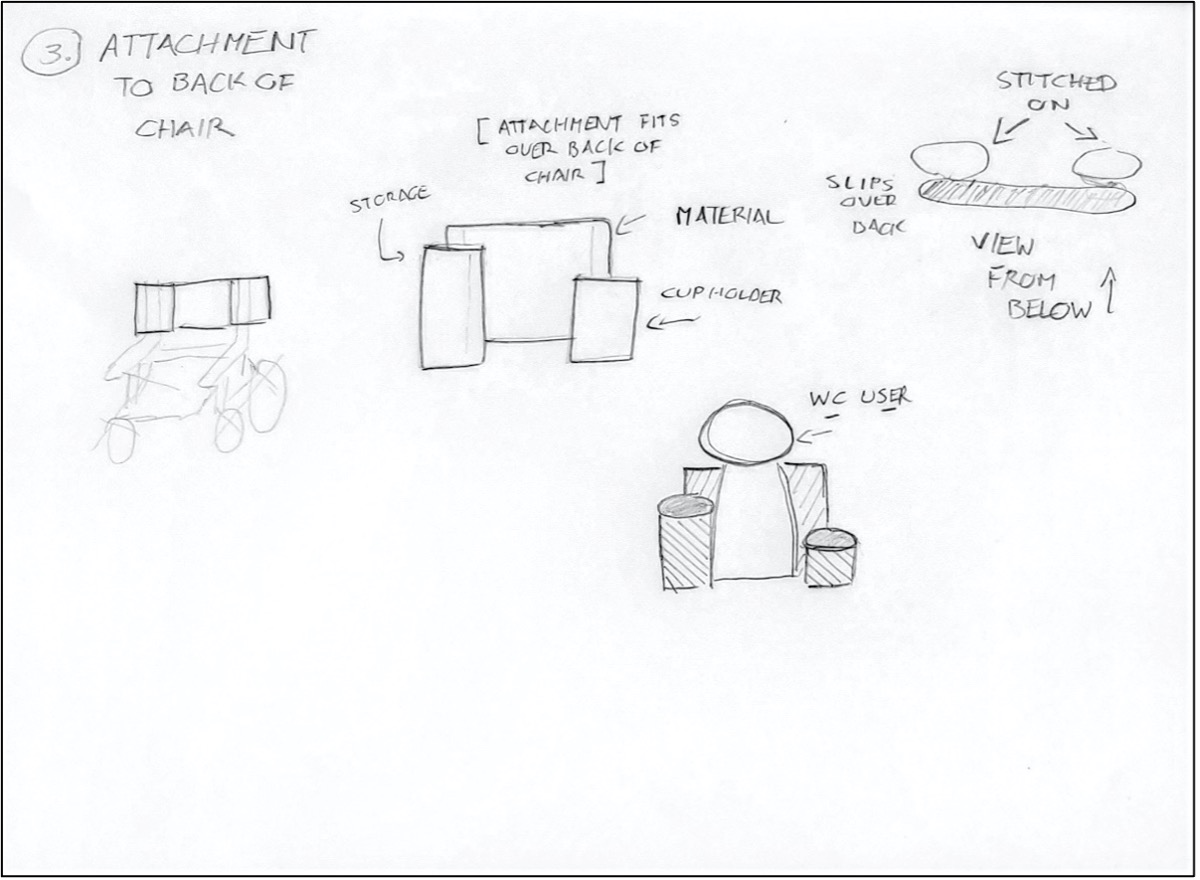 3. ATTACHMENT
TO BACK OF
CHAIR
[ATTACHMENT FITS
OVER BACK OF
CHAIR]
STORAGE
MATERIAL
CUPHOLDER
STITCHED
ON
SLIPS
OVER
BACK
VIEW
FROM
BELOW
WC USER